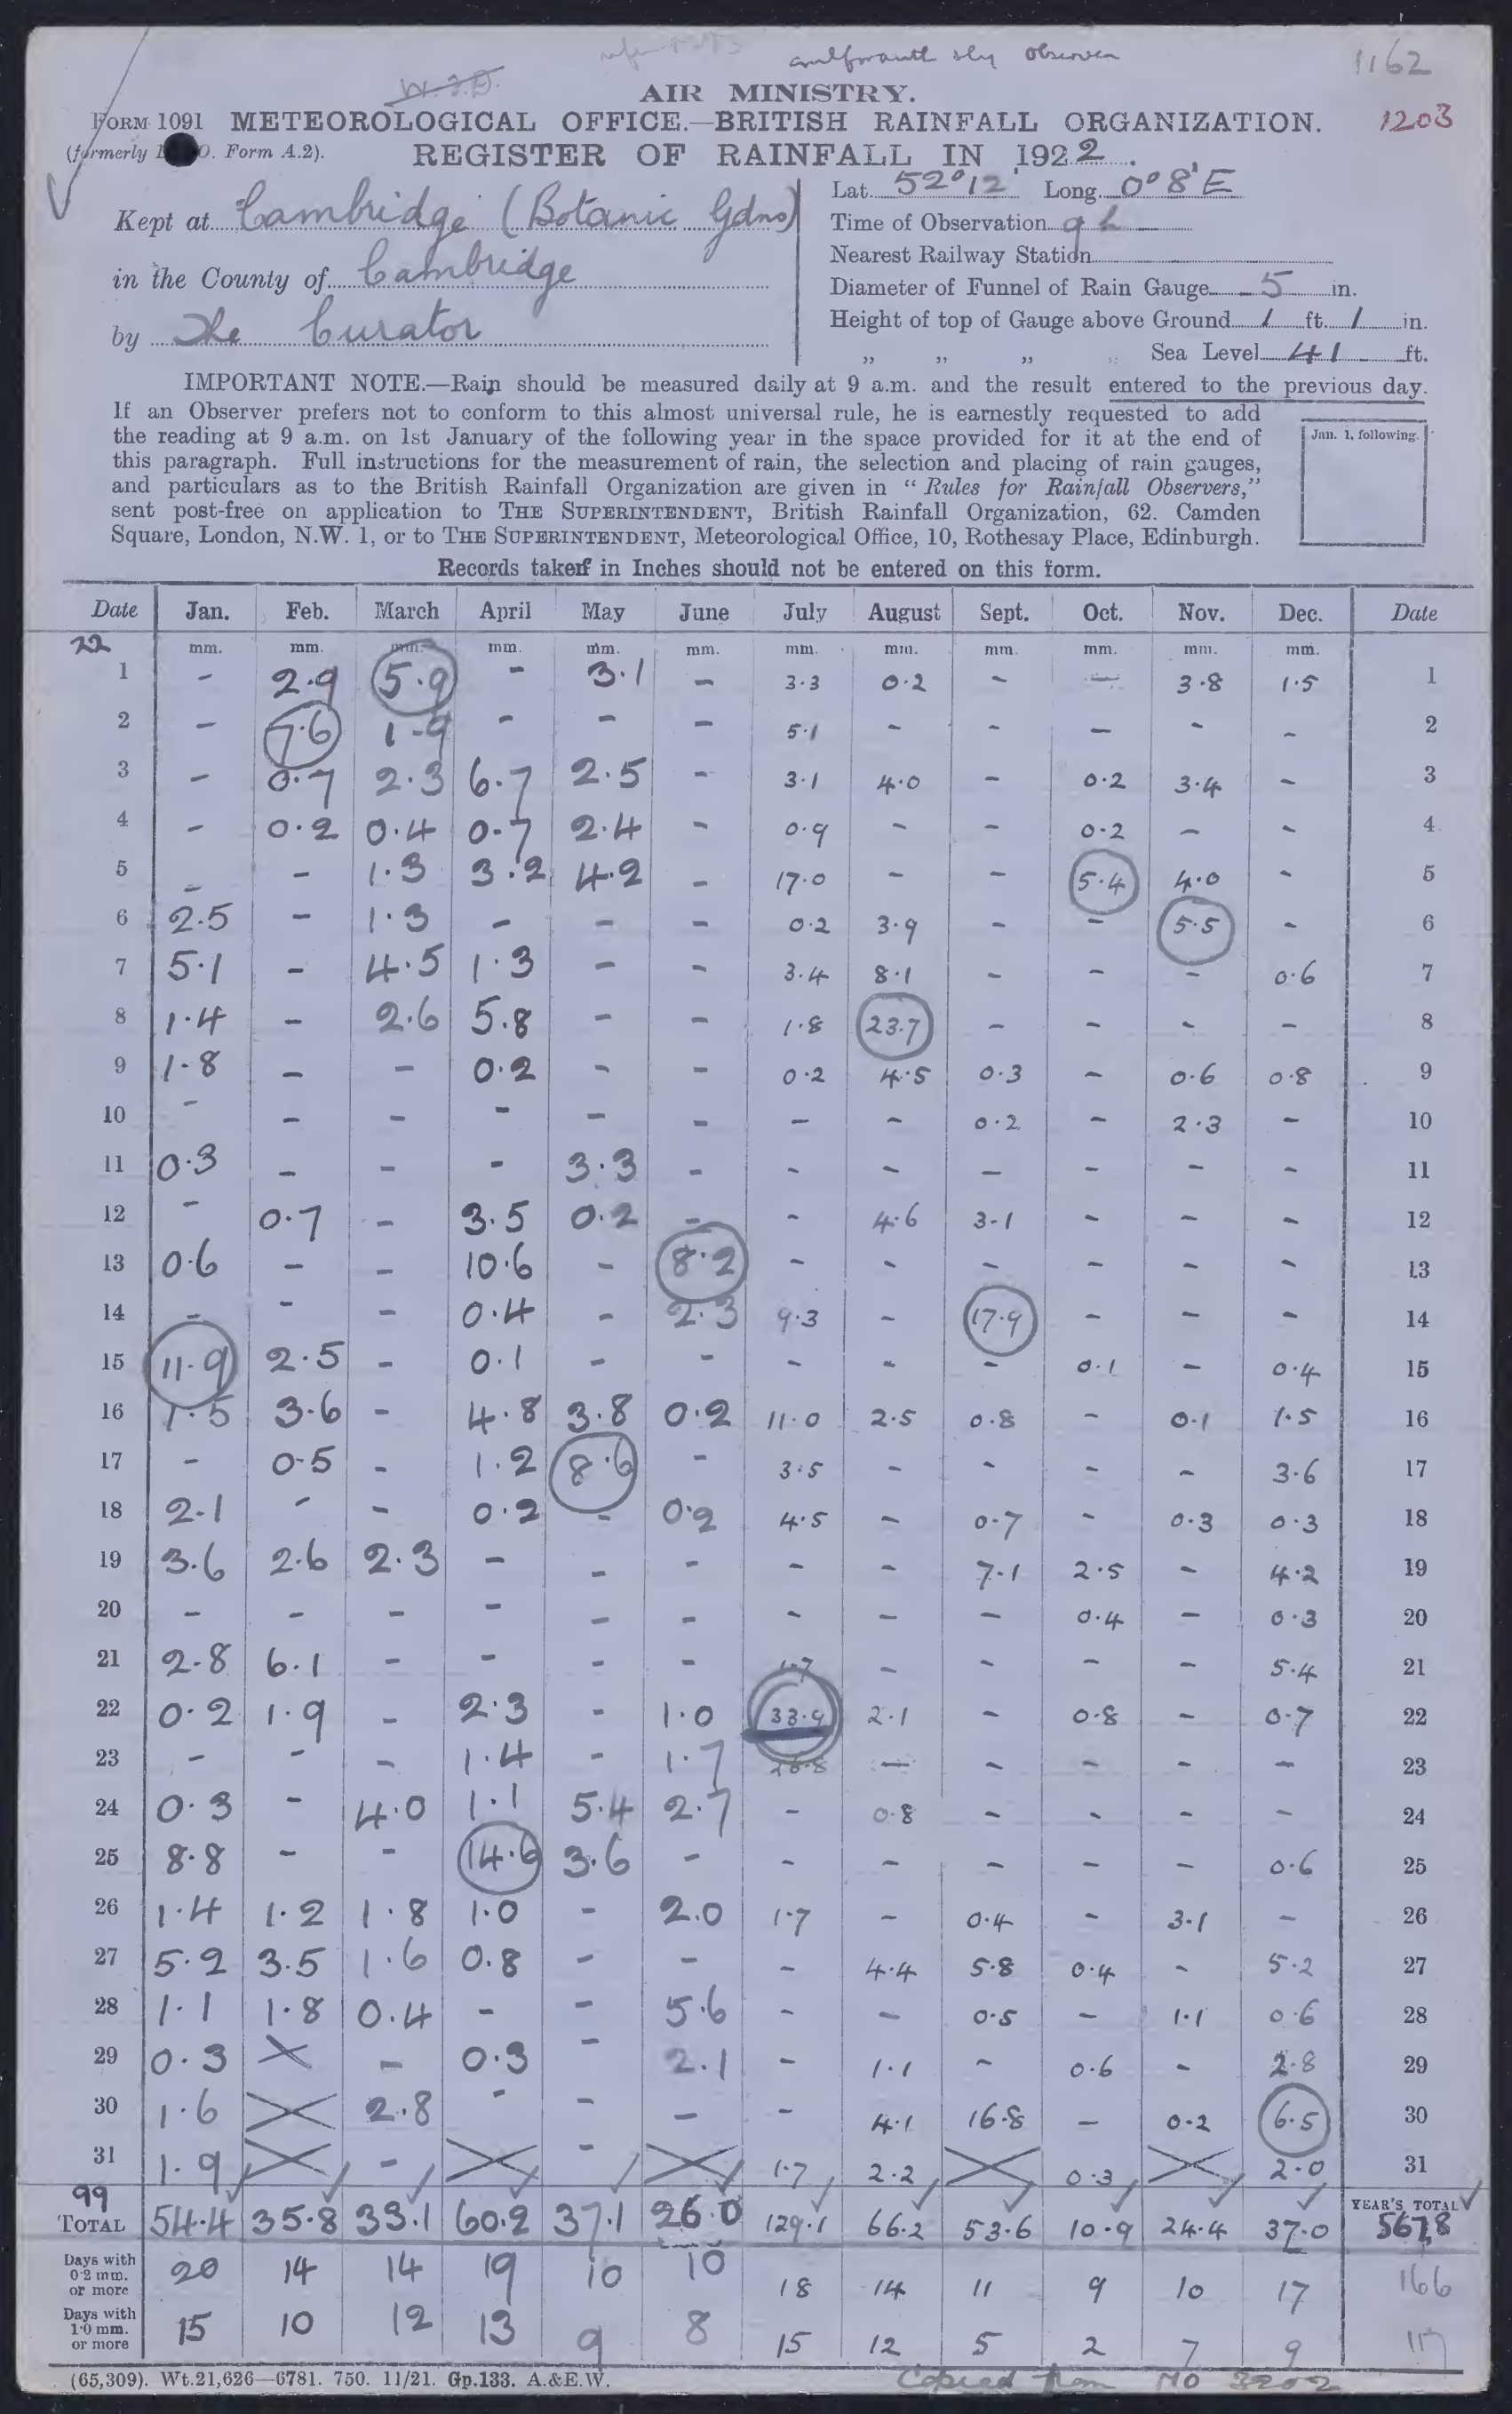 1162
W.I.D.
AIR MINISTRY.
FORM 1091 METEOROLOGICAL OFFICE.—BRITISH RAINFALL ORGANIZATION. 1203
(formerly O. Form A.2). REGISTER OF RAINFALL IN 1922.
Kept at Cambridge (Botanic Gdns)
in the County of Cambridge
by The Curator
Lat. 52°12' Long. 0°8'E
Time of Observation 9h
Nearest Railway Station
Diameter of Funnel of Rain Gauge 5 in.
Height of top of Gauge above Ground 1 ft. 1 in.
„ „ „ „ Sea Level 41 ft.
IMPORTANT NOTE.—Rain should be measured daily at 9 a.m. and the result entered to the previous day.
If an Observer prefers not to conform to this almost universal rule, he is earnestly requested to add
the reading at 9 a.m. on 1st January of the following year in the space provided for it at the end of
this paragraph. Full instructions for the measurement of rain, the selection and placing of rain gauges,
and particulars as to the British Rainfall Organization are given in “Rules for Rainfall Observers,”
sent post-free on application to THE SUPERINTENDENT, British Rainfall Organization, 62. Camden
Square, London, N.W. 1, or to THE SUPERINTENDENT, Meteorological Office, 10, Rothesay Place, Edinburgh.
Jan. 1, following.
Records taken in Inches should not be entered on this form.
Date Jan. Feb. March April May June July August Sept. Oct. Nov. Dec. Date
22 mm. mm. mm. mm. mm. mm. mm. mm. mm. mm. mm. mm.
1 - 2.9 5.9 - 3.1 - 3.3 0.2 - - 3.8 1.5 1
2 - 7.6 1.9 - - - 5.1 - - - - - 2
3 - 0.7 2.3 6.7 2.5 - 3.1 4.0 - 0.2 3.4 - 3
4 - 0.2 0.4 0.7 2.4 - 0.9 - - 0.2 - - 4
5 - - 1.3 3.2 4.2 - 17.0 - - 5.4 4.0 - 5
6 2.5 - 1.3 - - - 0.2 3.9 - - 5.5 - 6
7 5.1 - 4.5 1.3 - - 3.4 8.1 - - - 0.6 7
8 1.4 - 2.6 5.8 - - 1.8 23.7 - - - - 8
9 1.8 - - 0.2 - - 0.2 4.5 0.3 - 0.6 0.8 9
10 - - - - - - - - 0.2 - 2.3 - 10
11 0.3 - - - 3.3 - - - - - - - 11
12 - 0.7 - 3.5 0.2 - - 4.6 3.1 - - - 12
13 0.6 - - 10.6 - 8.2 - - - - - - 13
14 - - - 0.4 - 2.3 9.3 - 17.9 - - - 14
15 11.9 2.5 - 0.1 - - - - - 0.1 - 0.4 15
16 1.5 3.6 - 4.8 3.8 0.2 11.0 2.5 0.8 - 0.1 1.5 16
17 - 0.5 - 1.2 8.6 - 3.5 - - - - 3.6 17
18 2.1 - - 0.2 - 0.2 4.5 - 0.7 - 0.3 0.3 18
19 3.6 2.6 2.3 - - - - - 7.1 2.5 - 4.2 19
20 - - - - - - - - - 0.4 - 0.3 20
21 2.8 6.1 - - - - 1.7 - - - - 5.4 21
22 0.2 1.9 - 2.3 - 1.0 33.9 2.1 - 0.8 - 0.7 22
23 - - - 1.4 - 1.7 26.8 - - - - - 23
24 0.3 - 4.0 1.1 5.4 2.7 - 0.8 - - - - 24
25 8.8 - - 14.6 3.6 - - - - - - 0.6 25
26 1.4 1.2 1.8 1.0 - 2.0 1.7 - 0.4 - 3.1 - 26
27 5.2 3.5 1.6 0.8 - - - 4.4 5.8 0.4 - 5.2 27
28 1.1 1.8 0.4 - - 5.6 - - 0.5 - 1.1 0.6 28
29 0.3 - 0.3 - 2.1 - 1.1 - 0.6 - 2.8 29
30 1.6 2.8 - - - - 4.1 16.8 - 0.2 6.5 30
31 1.9 - - 1.7 2.2 0.3 2.0 31
99 YEAR'S TOTAL
TOTAL 54.4 35.8 33.1 60.2 37.1 26.0 129.1 66.2 53.6 10.9 24.4 37.0 567.8
Days with 0·2 mm. or more 20 14 14 19 10 10 18 14 11 9 10 17 166
Days with 1·0 mm. or more 15 10 12 13 9 8 15 12 5 2 7 9 117
(65,309). Wt.21,626—6781. 750. 11/21. Gp.133. A.&E.W. Copied from MO 3202